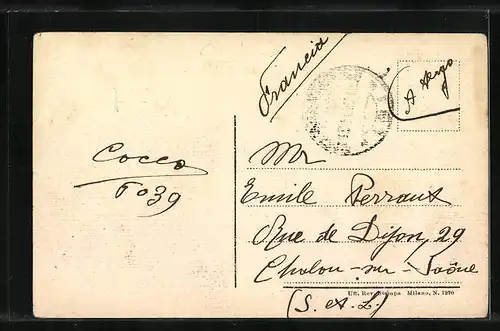 Francia
A tergo
Mr
Emile Perraux
Rue de Dijon, 29
Chalon-sur-Saône
Uff. Rev. Stampa Milano, N. 1270
(S. et L.)
Cocco